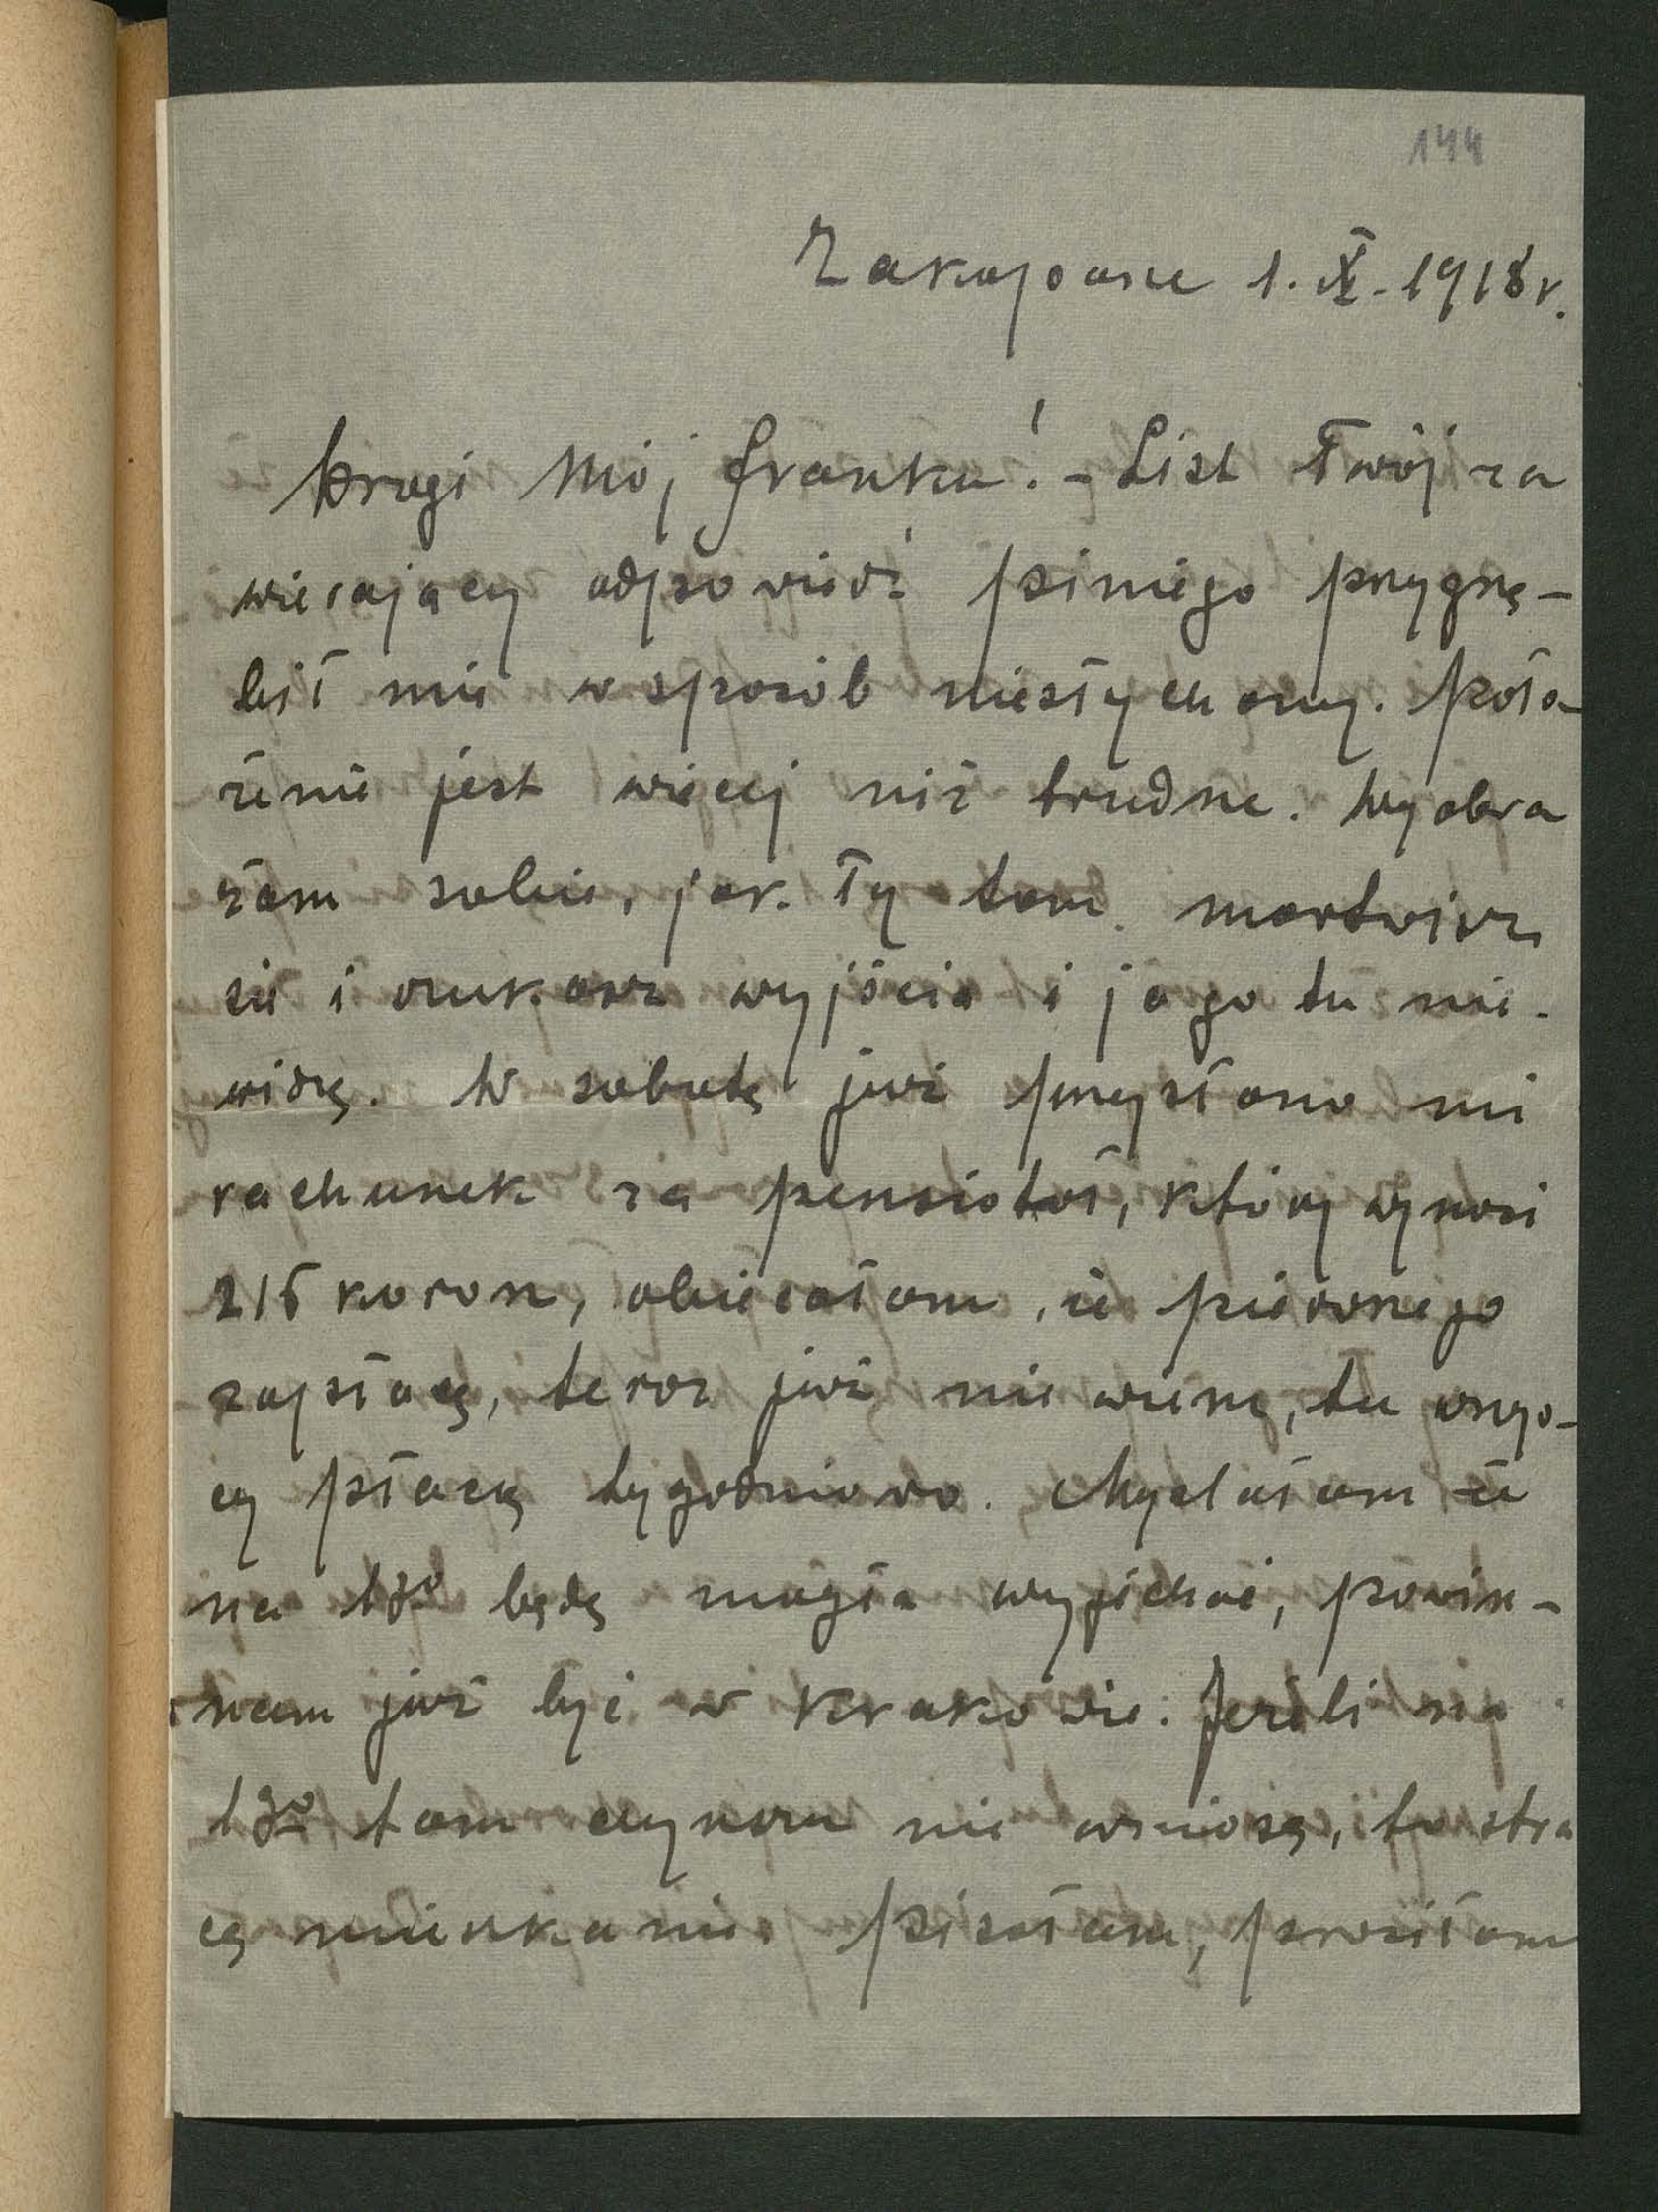 144
Zakopane 1. IX. 1918 r.
Drogi mój Franku! - List Twój za
wierający odpowiedź Piniego przygnę-
bił mię w sposób niesłychany. Poło-
żenie jest więcej niż trudne. Wyobra
żam sobie, jak Ty tam martwisz
się i szukasz wyjścia i ja go tu nie
widzę. W sobotę już przysłano mi
rachunek za pensiotat, który wynosi
215 koron, obiecałam, że pierwszego
zapłacę, teraz już nie wiem, tu wszys-
cy płacą tygodniowo. Myślałam że
na 1go będę mogła wyjechać, powin-
nam już być w Krakowie. Jeżeli na
1go tam czynszu nie wniosę, to stra
cę mieszkanie. Pisałam, prosiłam